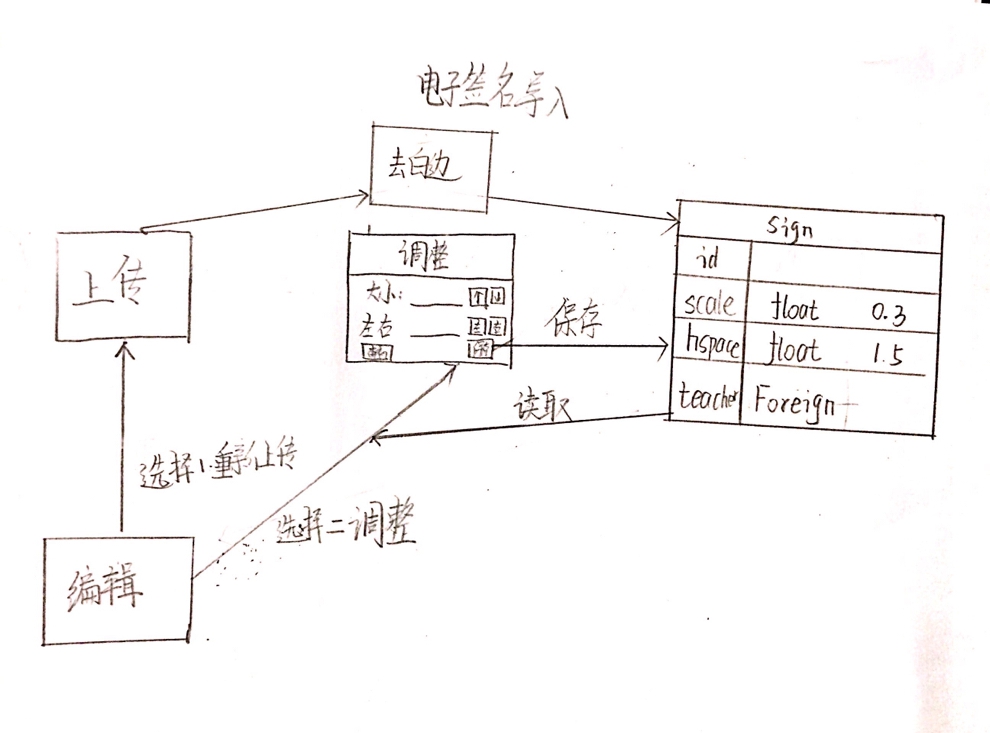 电子签名导入
去白边
上传
调整
大小:
左右
保存
读取
sign
id
scale float 0.3
hspace float 1.5
teacher Foreign
选择1.重新上传
选择二调整
编辑